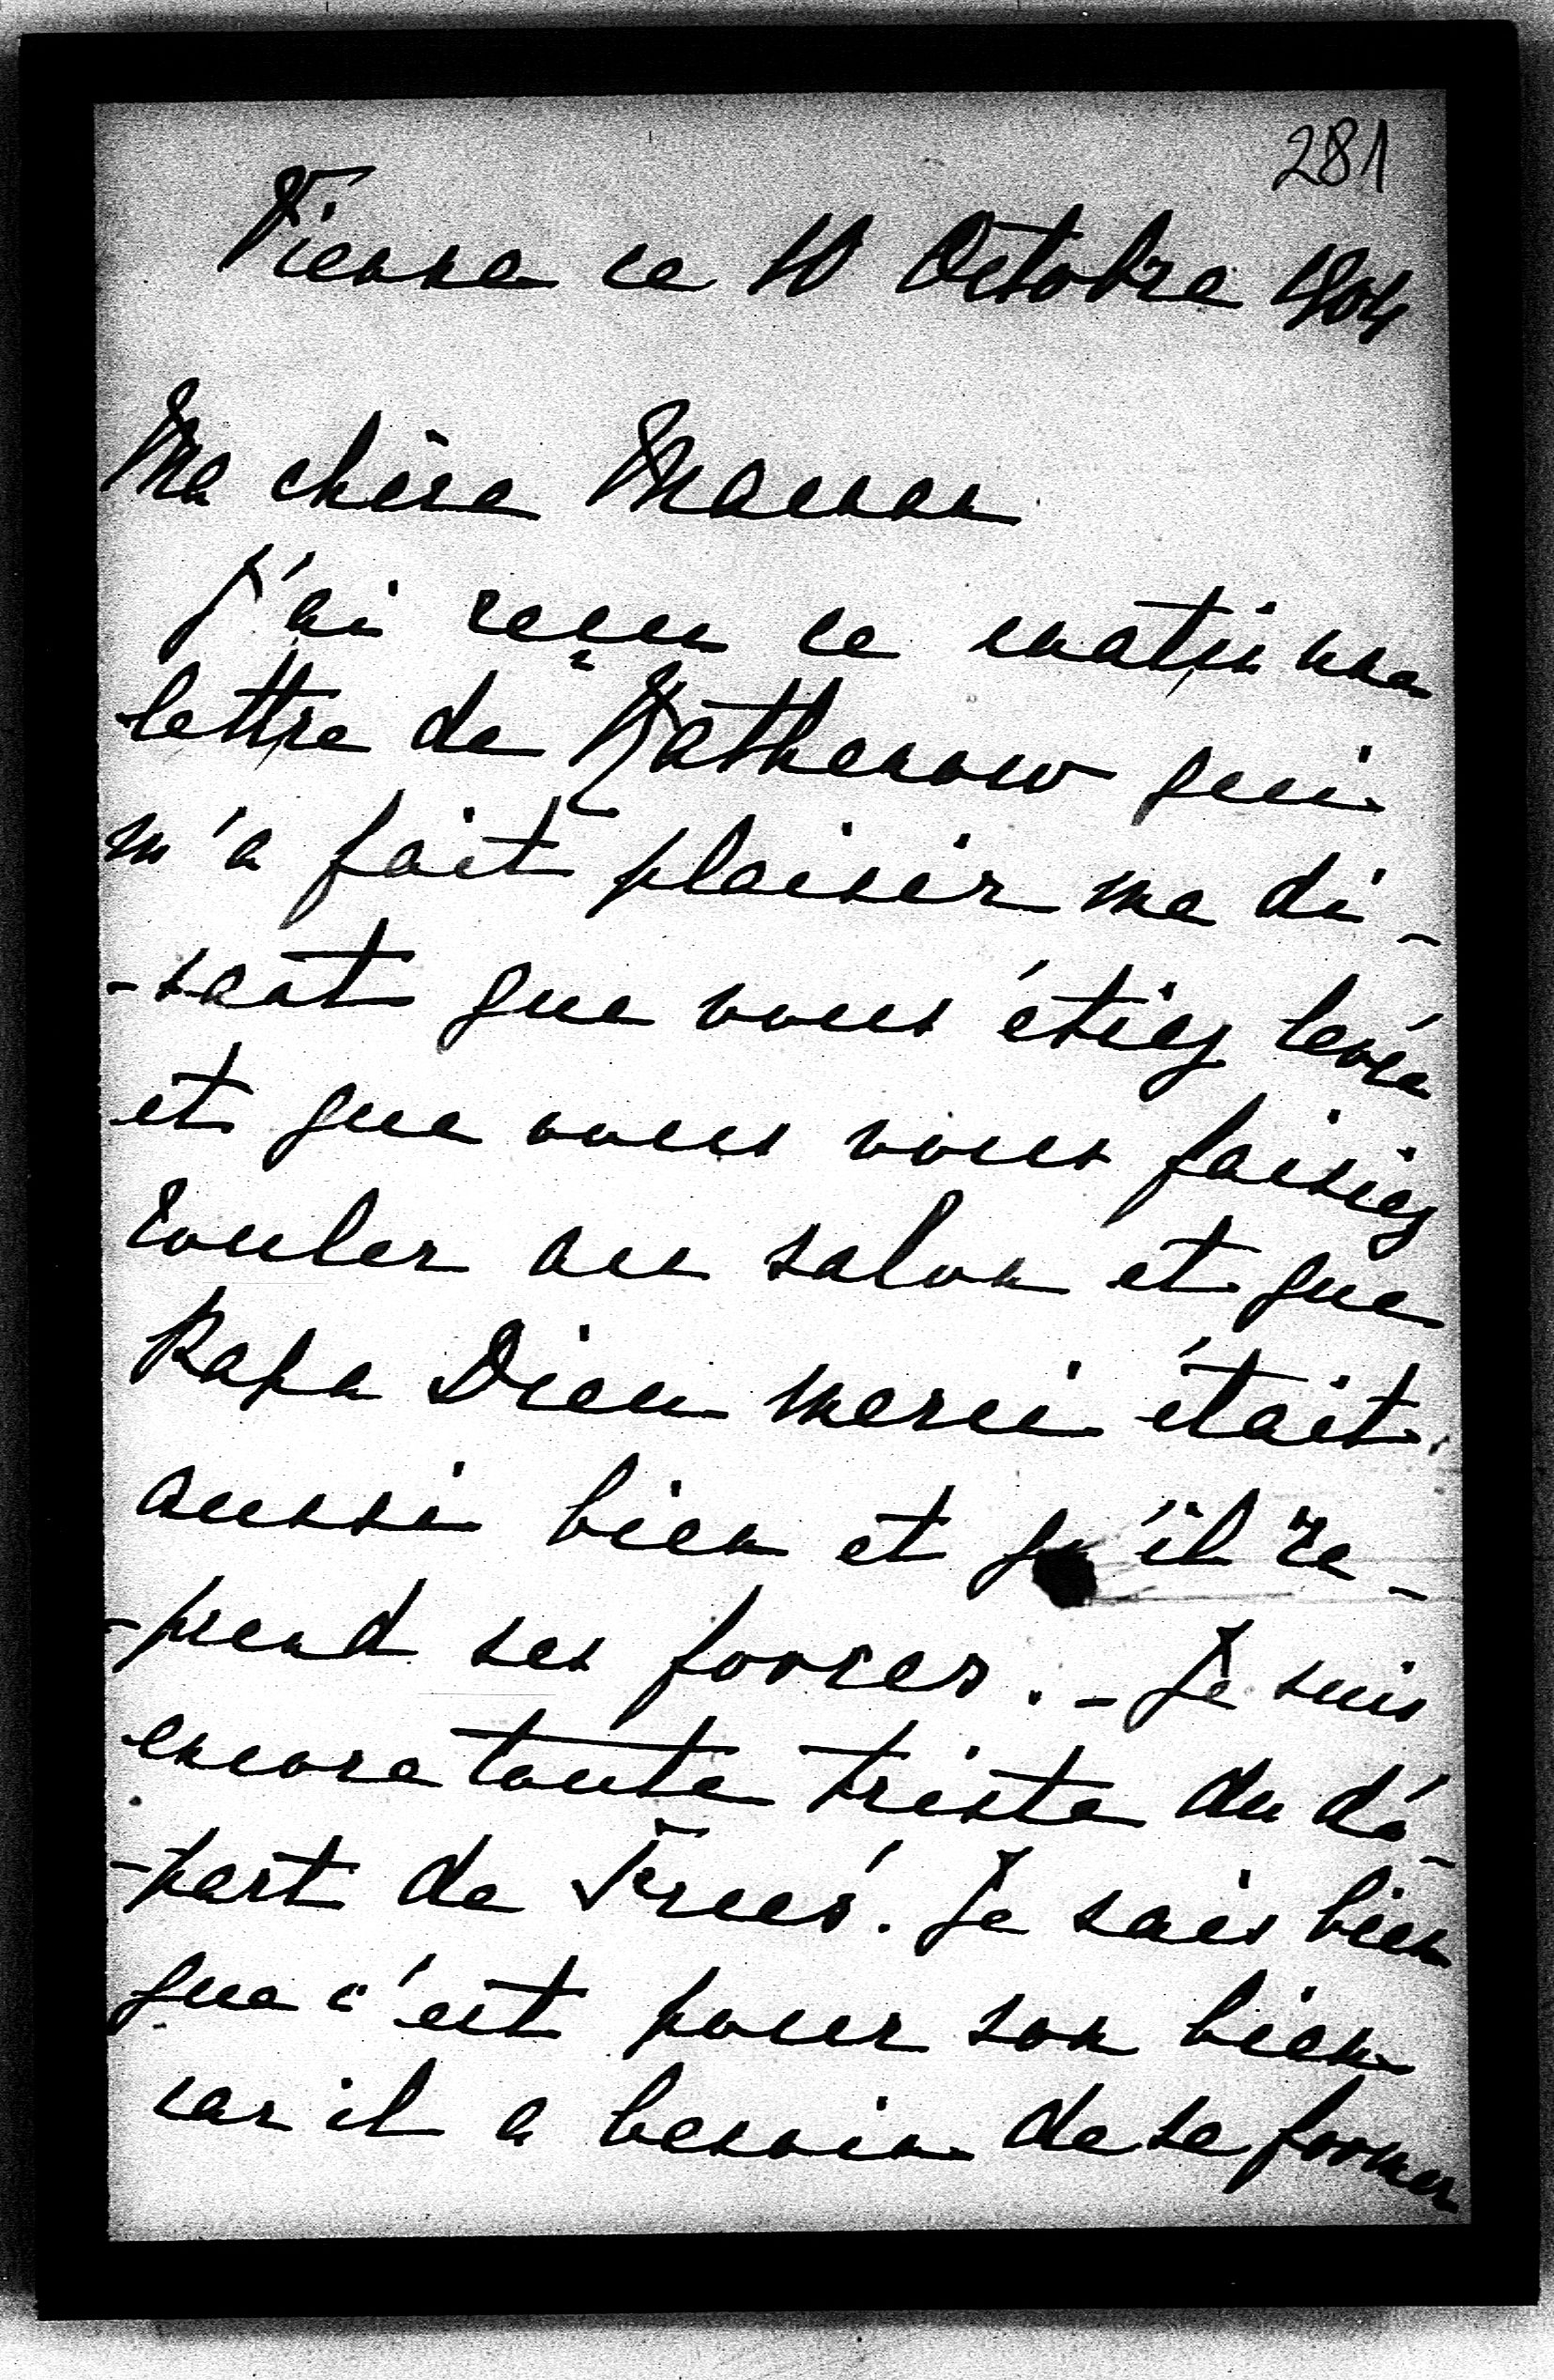 281
Vienne ce 10 Octobre 1904
Ma chère Maman
J'ai reçu ce matin une
lettre de Rathenow qui
m'a fait plaisir me di-
-sant que vous étiez levée
et que vous vous faisiez
rouler au salon et que
Papa Dieu merci était
aussi bien et qu'il re-
-prend ses forces. - Je suis
encore toute triste du dé-
-part de . Je sais bien
que c'est pour son bien
car il a besoin de se former